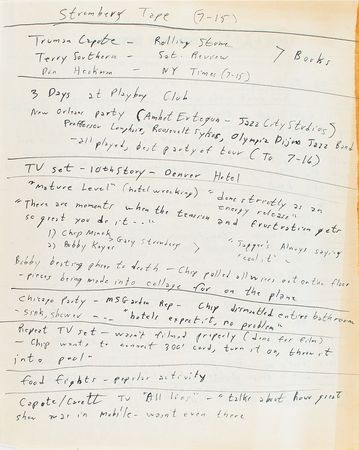 Stromberg Tape (7-15)
Truman Capote - Rolling Stone
Terry Southern - Sat. Review > Books
Don Heckman - NY Times (7-15)
3 Days at Playboy Club
New Orleans party (Ahmet Ertegun - Jazz City Studios)
Proffessor Longhair, Roosevelt Sykes, Olympia Jazz Band
- all played, best party of tour (To 7-16)
TV set - 10th story - Denver Hotel
"Mature Level" (hotel wrecking) "done strictly as an energy release"
"There are moments when the tension and frustration gets
so great you do it - - "
1) Chip Monck
2) Bobby Keyes > Gary Stromberg > "Jagger's Always saying 'cool it'"
Bobby beating phone to death - Chip pulled all wires out on the floor
- pieces being made into collage for on the plane
Chicago Party - MSGarden Rep - Chip dismantled entire bathroom
- sink, shower - - - "hotels expect it, no problem"
Repeat TV set - wasn't filmed properly (done for film)
- Chip wants to connect 300' cord, turn it on, throw it
into pool"
food fights - popular activity
Capote/Cavett TV "All lies" - "talks about how great
show was in Mobile - wasn't even there